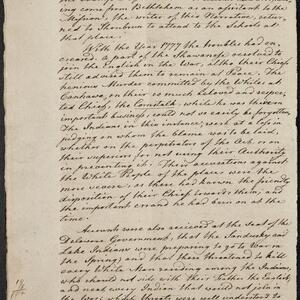 ing come from Bethlehem as an assistant to the
Mission, the writer of this Narrative, retur-
ned to Shonbrun to attend to the Schools at
that place.
With the Year 1777 the troubles had en-
creased. A part of the Shawanese resolved to
join the English in the War, altho their Chief
still advised them to remain at Peace. The
henious Murder committed by the Whites at
Canhawa, on their so much beloved and respec-
ted Chief, the Cornstalk, while he was there on
important business could not so easily be forgotten.
The Indians in this instance, were at a loss in
judging on whom the blame was to be laid,
whether on the perpetrators of the Act, or on
their superiors for not using of their Authority
in preventing it. Their accusations against
the White People of the place were the
more severe; as these had known the friendly
disposition of their Chief towards them; and
the important errand he had been on at the
time.
Accounts were also received at the seat of the
Delaware Government, that the Sandusky and
Lake Indians were preparing to go to War in
the Spring; and that they threatened to kill
every White Man residing among the Indians,
who should not side with their father the English,
and even every Indian that would not join in
the War,